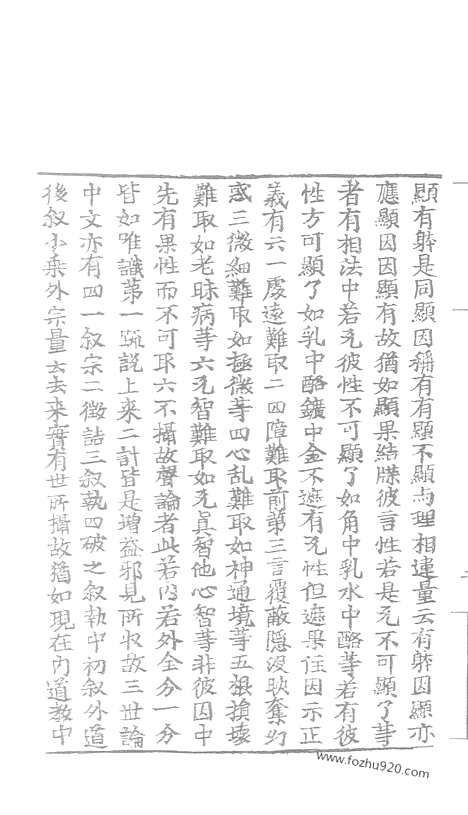 顯有躰是同顯因稱有有顯不顯与理相違量云有躰因顯亦
應顯因因顯有故猶如顯果結牒彼言性若是旡不可顯了等
者有相法中若旡彼性不可顯了如角中乳水中酪等若有彼
性方可顯了如乳中酪鑛中金不遮有旡性但遮果住因示正
義有六一處遠難取二四障難取前第三言覆蔽隱沒映奪幻
惑三微細難取如極微等四心乱難取如神通境等五根損壞
難取如老昧病等六旡智難取如旡真智他心智等非彼因中
先有果性而不可取六不攝故聲論者此若内若外全分一分
皆如唯識第一䟽說上來二計皆是增益邪見所收故三世論
中文亦有四一叙宗二徵詰三叙執四破之叙執中初叙外道
後叙小乘外宗量云去來實有世所攝故猶如現在內道教中
www.fozhu920.com